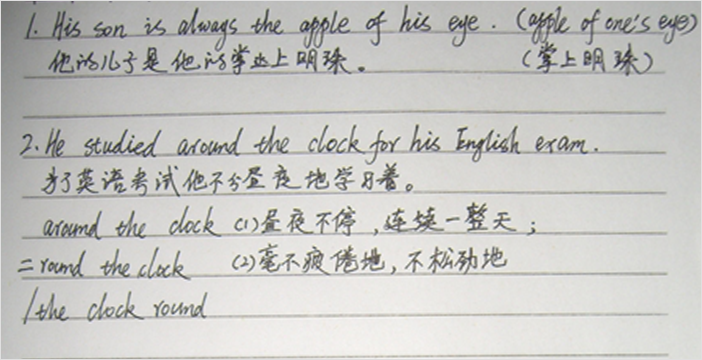 1. His son is always the apple of his eye. (apple of one's eye)
他的儿子是他的掌上明珠。 (掌上明珠)
2. He studied around the clock for his English exam.
为了英语考试他不分昼夜地学习着。
around the clock (1)昼夜不停,连续一整天;
=round the clock (2)毫不疲倦地,不松劲地
/the clock round